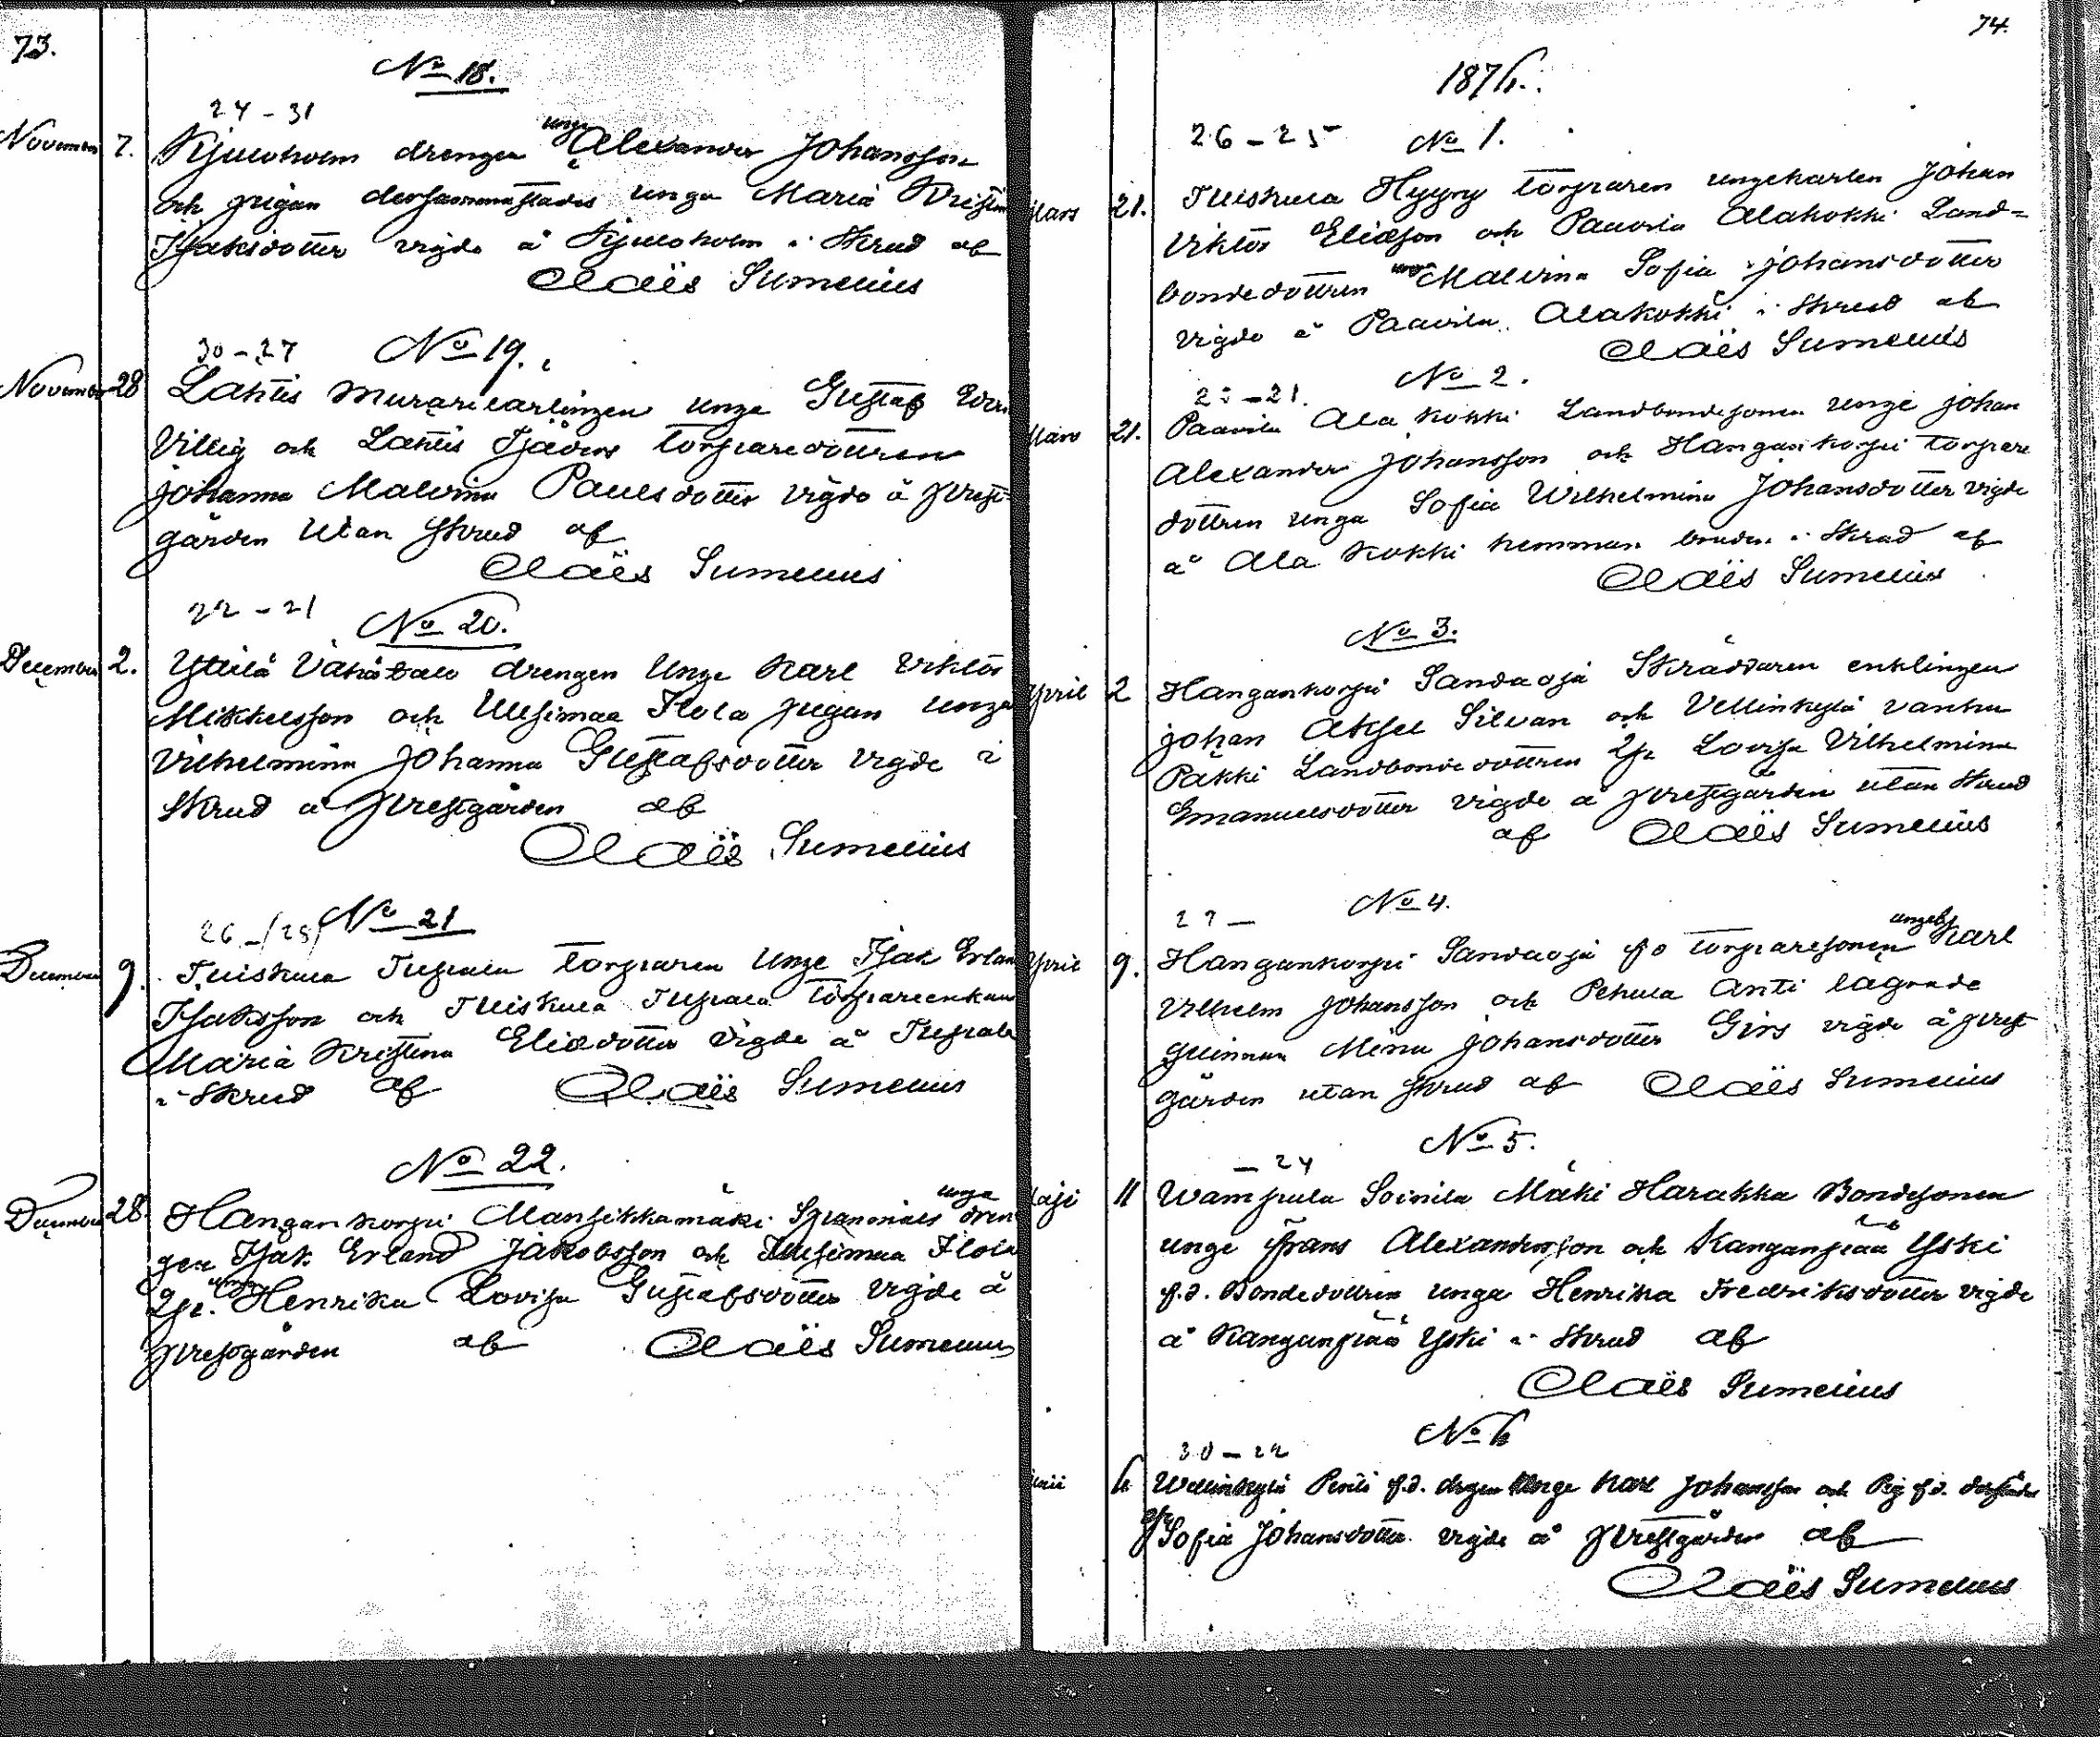 73.
No 18.
24 - 31
November 7. Kjuloholm drengen unge Alexander Johansson
och pigan dersammastädes unga Maria Kristina
Isaksdotter vigde å Kjuloholm i skrud af
Claës Sumelius
30 - 27 No 19.
November 28 Lahtis murarelärlingen unge Gustaf
Villig och Lahtis Tjäders torparedottren
Johanna Malvina Paulsdotter vigde å prest-
gården utan skrud af
Claës Sumelius
22 - 21
No 20.
December 2. Yttilä Vähätalo drengen unge Karl Viktor
Mikkelsson och Uusimaa Ilola pigan unga
Vilhelmina Johanna Gustafsdotter vigde i
skrud å prestgården af
Claës Sumelius
26 - (25) No 21
December 9. Tuiskula Tupala torparen unge Isak Erland
Isaksson och Tuiskula Tupala torpareenkan
Maria Kristina Eliædotter vigde å Tupala
i skrud af Claës Sumelius
No 22.
December 28 Hangankorpi Mansikkamäki unge dren
gen Isak Erland Jakobsson och Uusimaa Ilola
unga Henrika Lovisa Gustafsdotter vigde å
prestgården af Claës Sumelius
74.
1876.
26 - 25 No 1.
Mars 21. Tuiskula Hyyry torparen ungekarlen Johan
Viktor Eliæson och Paavila Alakokki Land-
bondedottren unga Malvina Sofia Johansdotter
vigde å Paavila Alakokki i skrud af
Claës Sumelius
No 2.
Mars 21. Paavila Ala Kokki Landbondesonen unge Johan
Alexander Johansson och Hangankorpi torpare
dottren unga Sofia Wilhelmina Johansdotter vigde
å Ala Kokki hemman i skrud af
Claës Sumelius
No 3.
April 2 Hangankorpi Sandaoja Skräddaren enklingen
Johan Aksel Silvan och Vellinkylä vanha
Pakki Landbondedottren Lovisa Vilhelmina
Emanuelsdotter vigde å prestgården utan skrud
af Claës Sumelius
27 - No 4.
April 9. Hangankorpi Sandaoja fd torparesonen Karl
Vilhelm Johansson och Pehula Anti lagrade
qvinnan Mina Johansdotter Girs vigde å prest
gården utan skrud af Claës Sumelius
No 5.
- 24
Maji 11 Wampula Soinila Mäki Harakka Bondesonen
unge Frans Alexandersson och Kanganpää Yski
f.d. Bondedottren unga Henrika Fredriksdotter vigde
å Kanganpää Yski i skrud af
Claës Sumelius
No 6
30 - 22
Junii 6 Wellinkylä f.d. drgen Unge Karl Johansson och Pig f.d.
Sofia Johansdotter vigde å prestgården af
Claës Sumelius